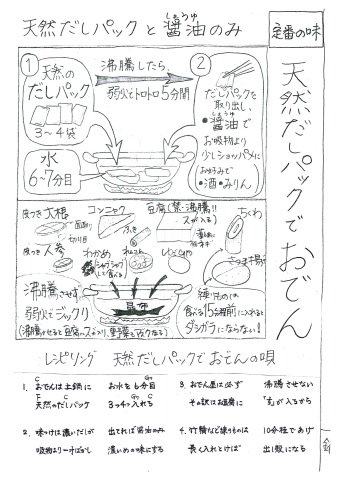 天然だしパックと醤油のみ
しょうゆ
定番の味
天然だしパックでおでん
①
天然の
だしパック
3〜4袋
水
6〜7分目
沸騰したら、
弱火でトロトロ5分間
②
だしパックを
取り出し、
しょうゆ
●醤油で
お吸物より
少しショッパメに
(お好みで
●酒・みりん)
皮つき大根
面取り
切り目
コンニャク
豆腐(禁・沸騰!!
スが入る)
ちくわ
皮つき人参
わかめ
(シャブシャブ
して食べる)
ふき
じゃがいも
さつま揚げ
昆布
沸騰させず、
弱火でジックリ
(沸騰させると豆腐にスが入り、
練りものは
食べる15分程前に入れると
ダシガラにならない!
レシピリング 天然だしパックでおでんの唄
1. おでんは土鍋に お水を6分目
天然のだしパック 3つ4つ入れる
2. 味つけは濃いだしが 出てれば醤油のみ
吸物より一寸ばかし 濃いめの味にする
3. おでん屋は必ず 沸騰させない
その訳はお豆腐に 「す」が入るから
4. 竹輪など練りものは 10分程であげ
長く入れとけば 出し殻になる